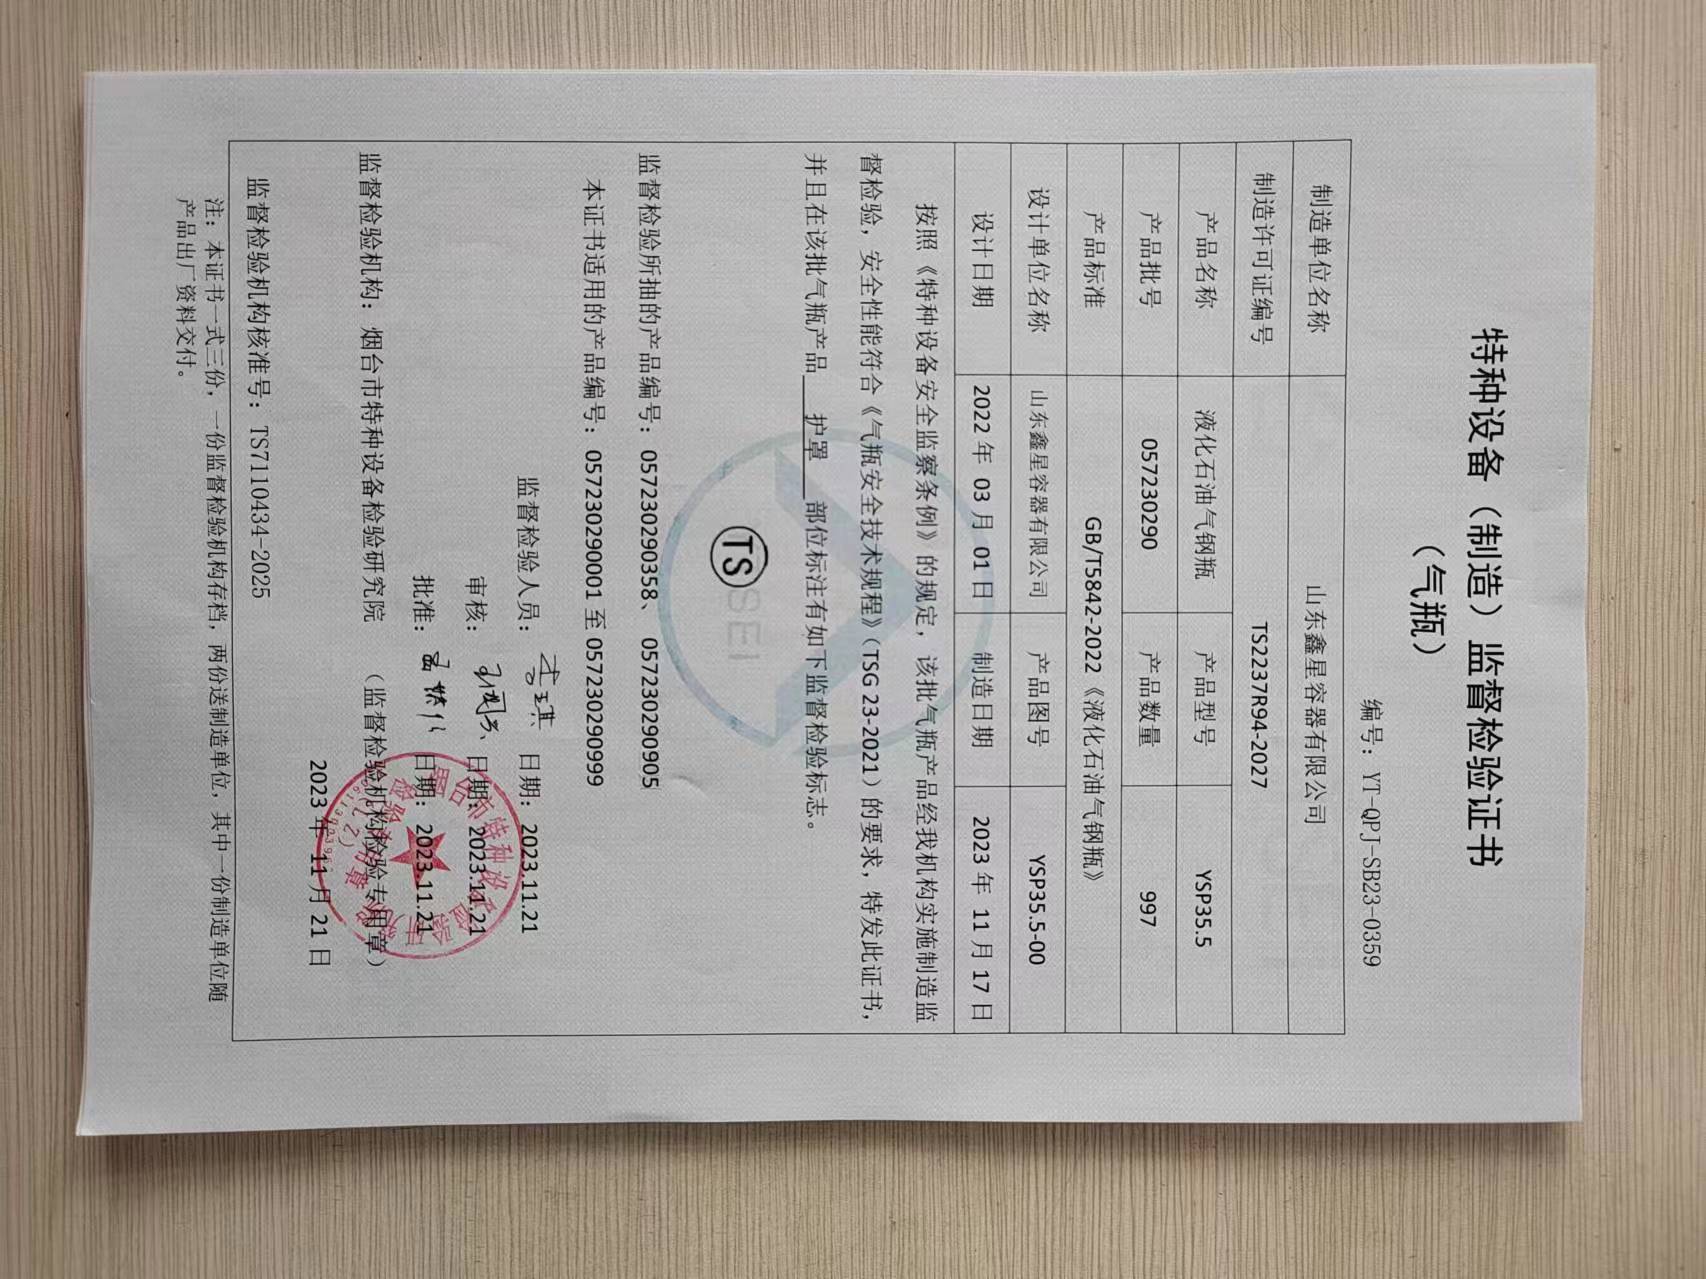 特种设备（制造）监督检验证书
（气瓶）
编号：YT-QPJ-SB23-0359
制造单位名称 山东鑫星容器有限公司
制造许可证编号 TS2237R94-2027
产品名称 液化石油气钢瓶 产品型号 YSP35.5
产品批号 057230290 产品数量 997
产品标准 GB/T5842-2022《液化石油气钢瓶》
设计单位名称 山东鑫星容器有限公司 产品图号 YSP35.5-00
设计日期 2022 年 03 月 01 日 制造日期 2023 年 11 月 17 日
按照《特种设备安全监察条例》的规定，该批气瓶产品经我机构实施制造监
督检验，安全性能符合《气瓶安全技术规程》（TSG 23-2021）的要求，特发此证书，
并且在该批气瓶产品 护罩 部位标注有如下监督检验标志。
TS
SEI
监督检验所抽的产品编号：057230290358、 057230290905
本证书适用的产品编号：057230290001 至 057230290999
监督检验人员： 日期：2023.11.21
审核： 日期：2023.11.21
批准： 日期：2023.11.21
监督检验机构：烟台市特种设备检验研究院 （监督检验机构检验专用章）
2023 年 11 月 21 日
监督检验机构核准号：TS7110434-2025
注：本证书一式三份，一份监督检验机构存档，两份送制造单位，其中一份制造单位随
产品出厂资料交付。